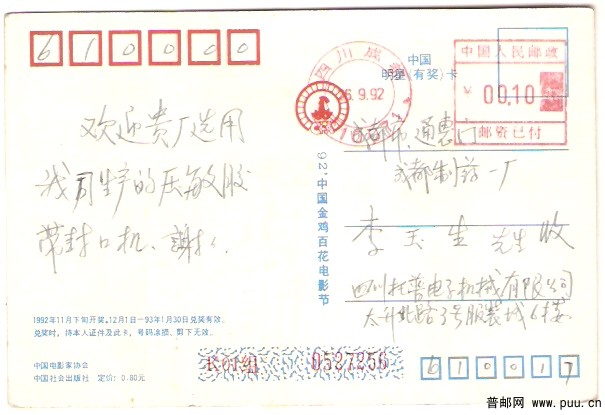 610000
中国
明星(有奖)卡
四川 成都
6.9.92
中国人民邮政
¥ 00.10
邮资已付
欢迎贵厂选用
我司生产的压敏胶
带封口机、谢谢
成都市通惠门
成都制药一厂
李玉生 先生收
四川托普电子机械有限公司
太升北路3号服装城6楼
92'中国金鸡百花电影节
1992年11月下旬开奖,12月1日—93年1月30日兑奖有效。
兑奖时,持本人证件及此卡,号码涂损、剪下无效。
中国电影家协会
中国社会出版社 定价:0.80元
长04组 0527256
610017
普邮网 www.puu.cn